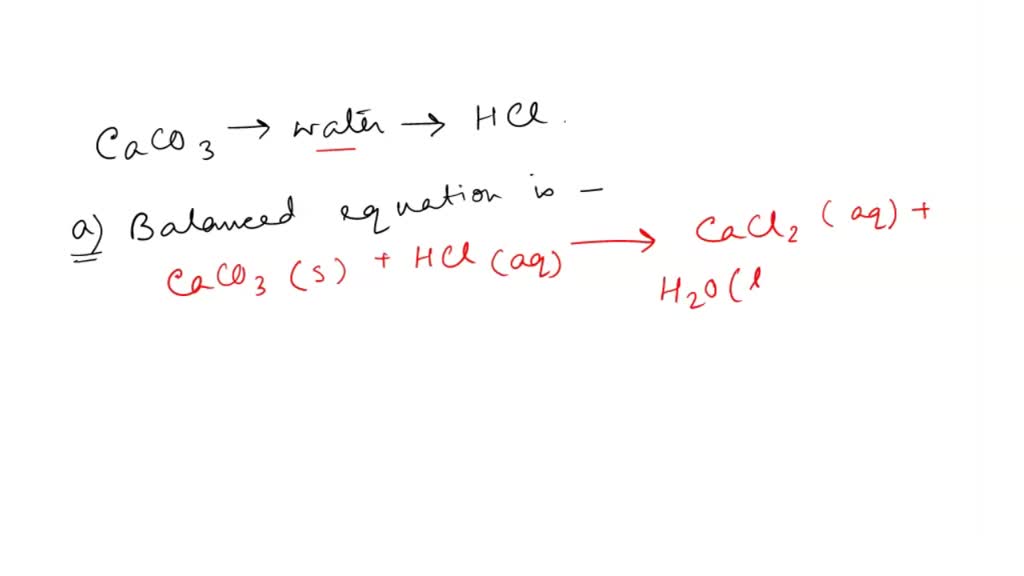 CaCO3 → water → HCl.
a) Balanced equation is –
CaCO3 (s) + HCl (aq) → CaCl2 (aq) +
H2O (l